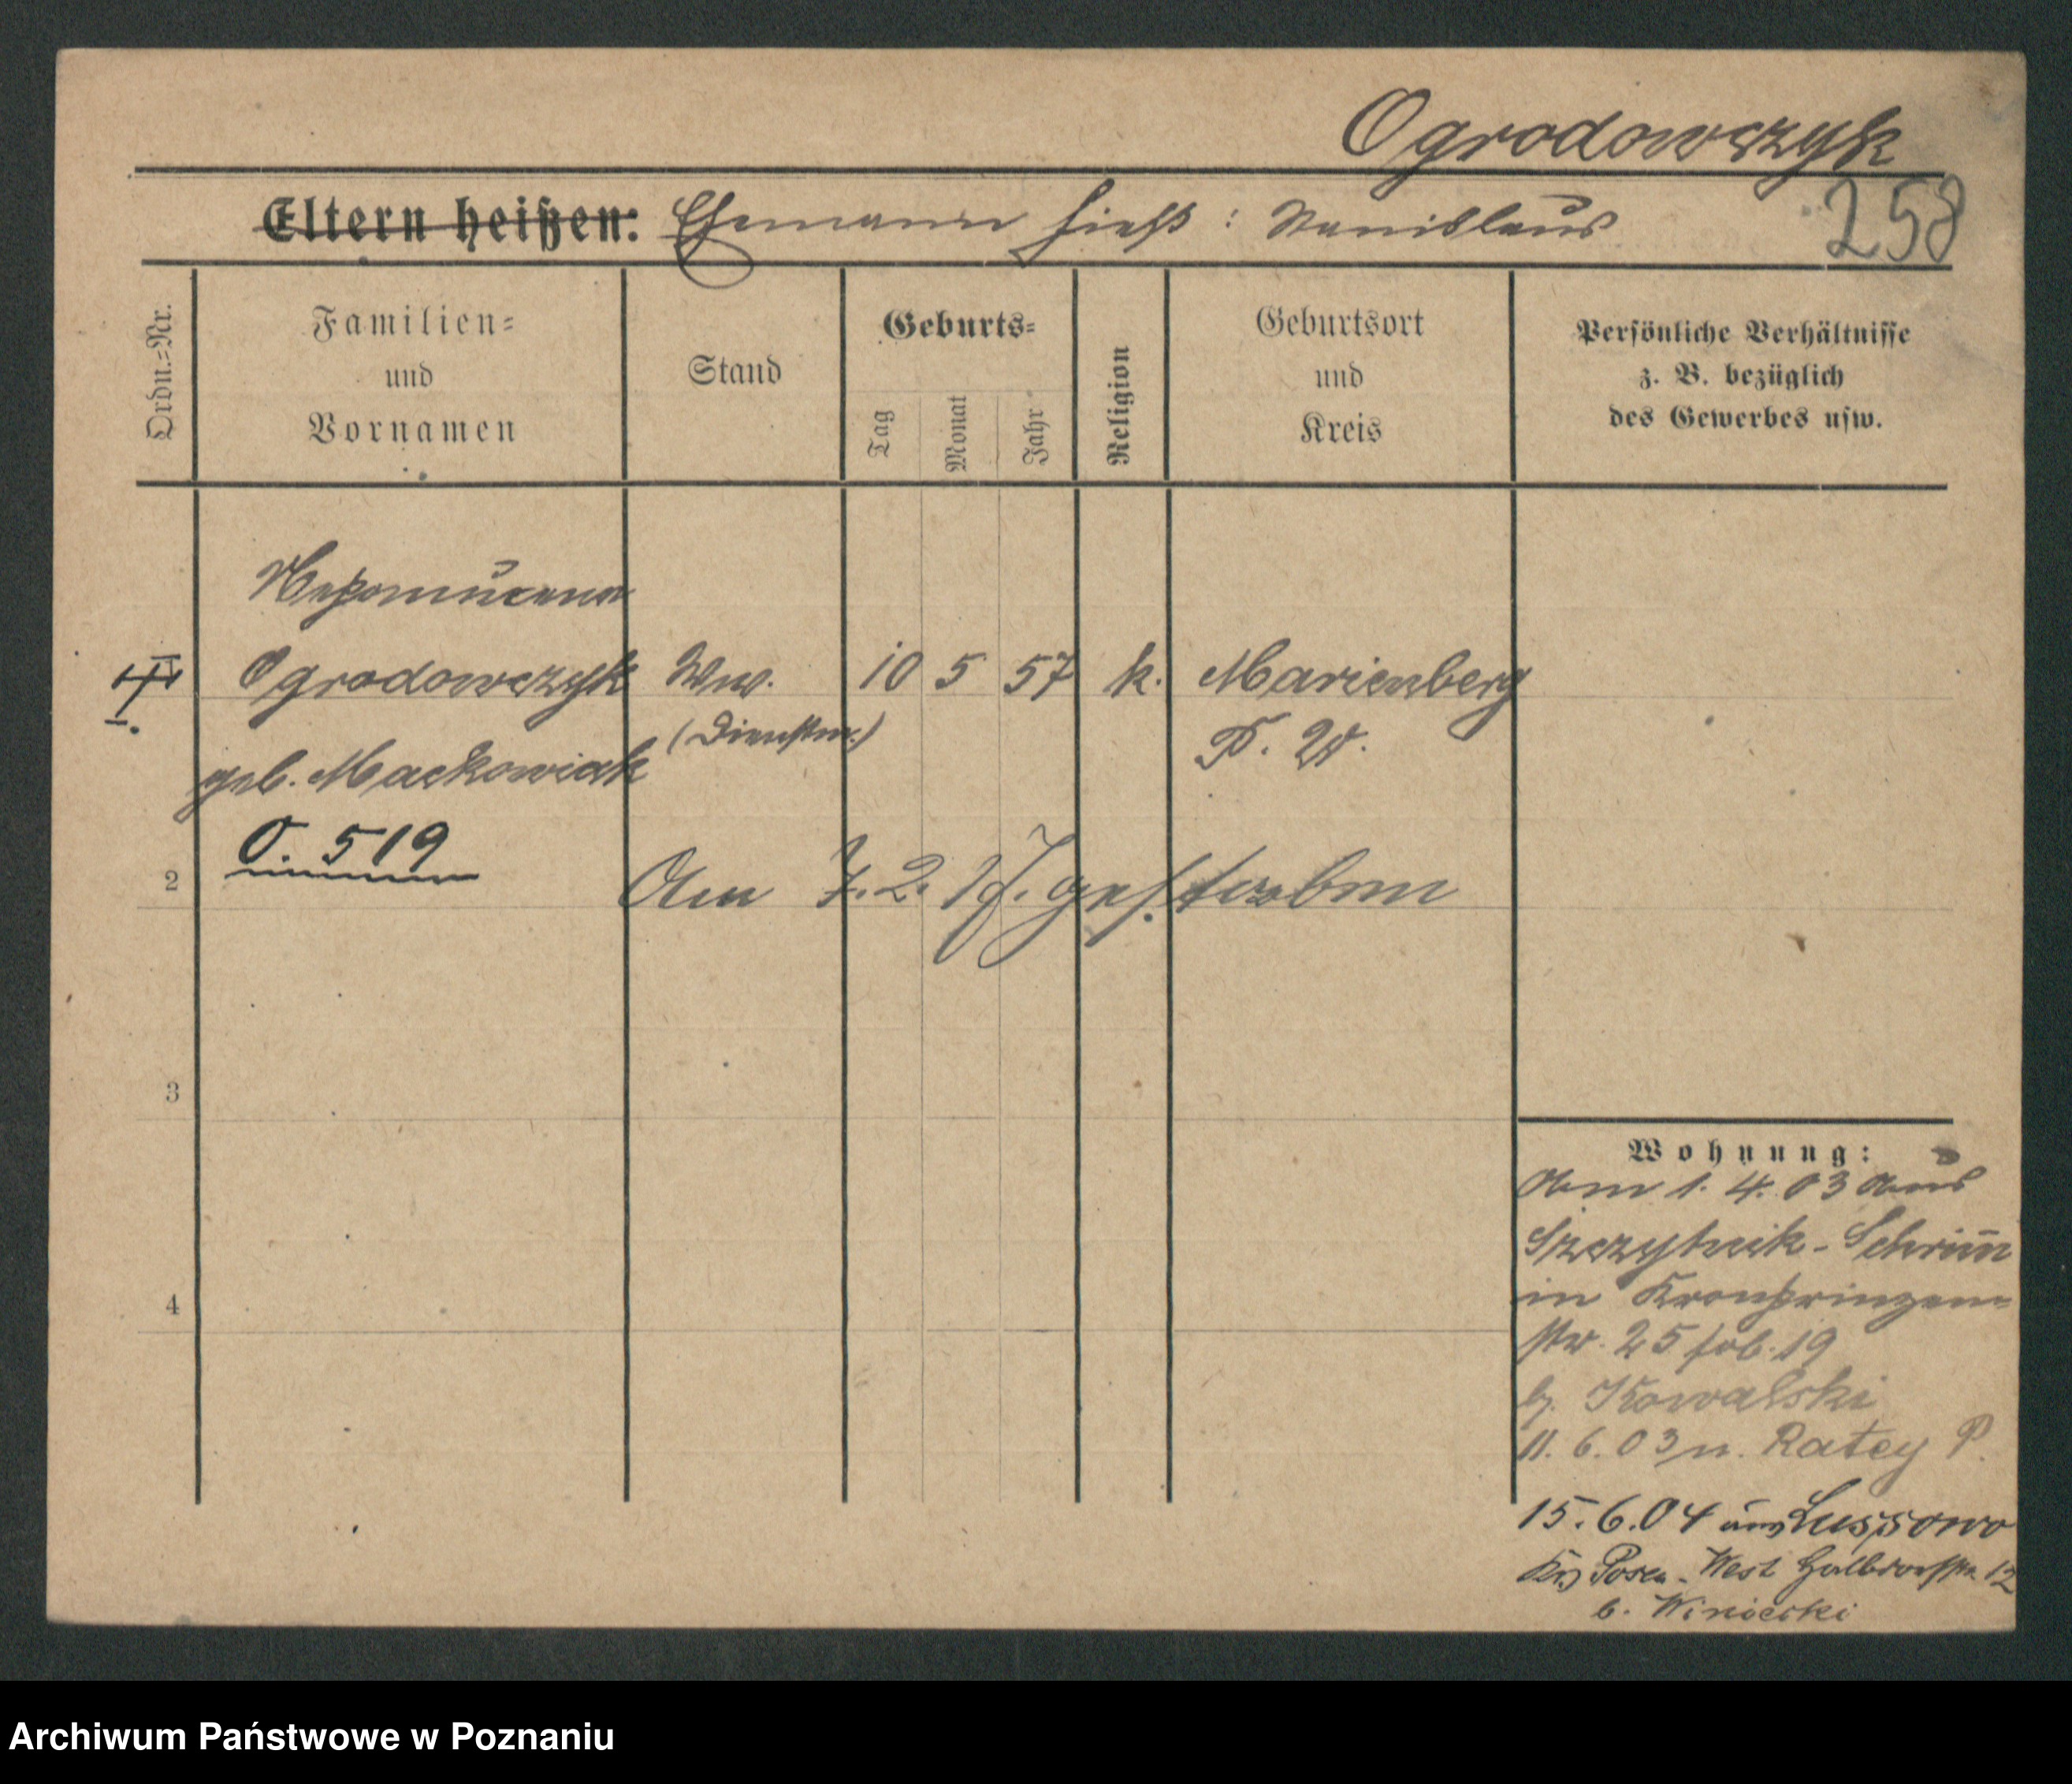 Ogrodowczyk
258
Eltern heißen: Ehemann hieß: Stanislaus
Ordn.=Nr.
Familien=
und
Vornamen
Stand
Geburts=
Tag
Monat
Jahr
Religion
Geburtsort
und
Kreis
Persönliche Verhältnisse
z. B. bezüglich
des Gewerbes usw.
Nepomucena
Ogrodowczyk Ww. 10 5 57 k. Marienberg
(Dienstm.) P. W.
geb. Mackowiak
O. 519
2 Am 7. 2. gestorben
3
4
Wohnung:
Am 1. 4. 03 aus
Szczytnik - Schrim
in Kronprinzen=
str. 25 19
b. Kowalski
11. 6. 03 n. Ratay P.
15. 6. 04 aus Lussowo
Krs Posen - West Halbdorfstr. 12
b. Winiecki
Archiwum Państwowe w Poznaniu